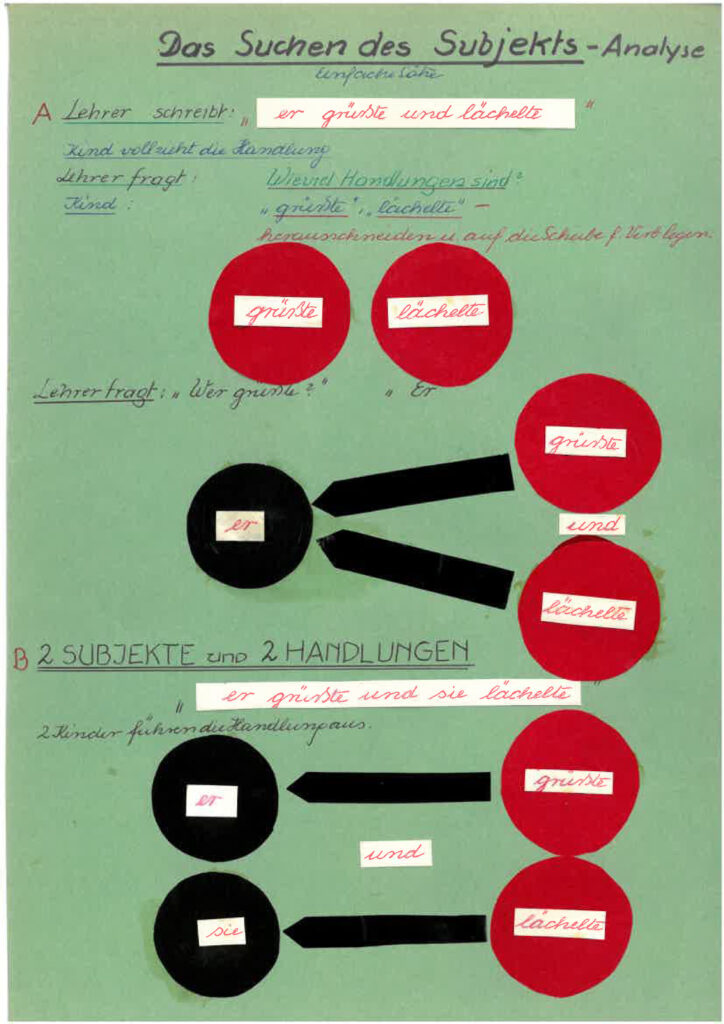 Das Suchen des Subjekts - Analyse
Einfache Sätze
A Lehrer schreibt: " er grüßte und lächelte "
Kind vollzieht die Handlung
Lehrer fragt: Wieviel Handlungen sind?
Kind: "grüßte", "lächelte" -
herausschneiden u. auf die Scheibe f. Verb legen.
grüßte lächelte
Lehrer fragt: "Wer grüßte?" " Er
grüßte
er
und
lächelte
B 2 SUBJEKTE und 2 HANDLUNGEN
" er grüßte und sie lächelte "
2 Kinder führen die Handlung aus.
er grüßte
und
sie lächelte